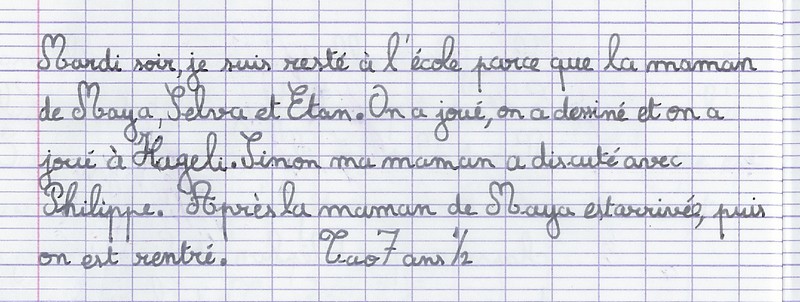 Mardi soir, je suis resté à l'école parce que la maman
de Maya, Selva et Etan. On a joué, on a dessiné et on a
joué à Hageli. Sinon ma maman a discuté avec
Philippe. Après la maman de Maya est arrivée, puis
on est rentré. Tao 7 ans 1/2